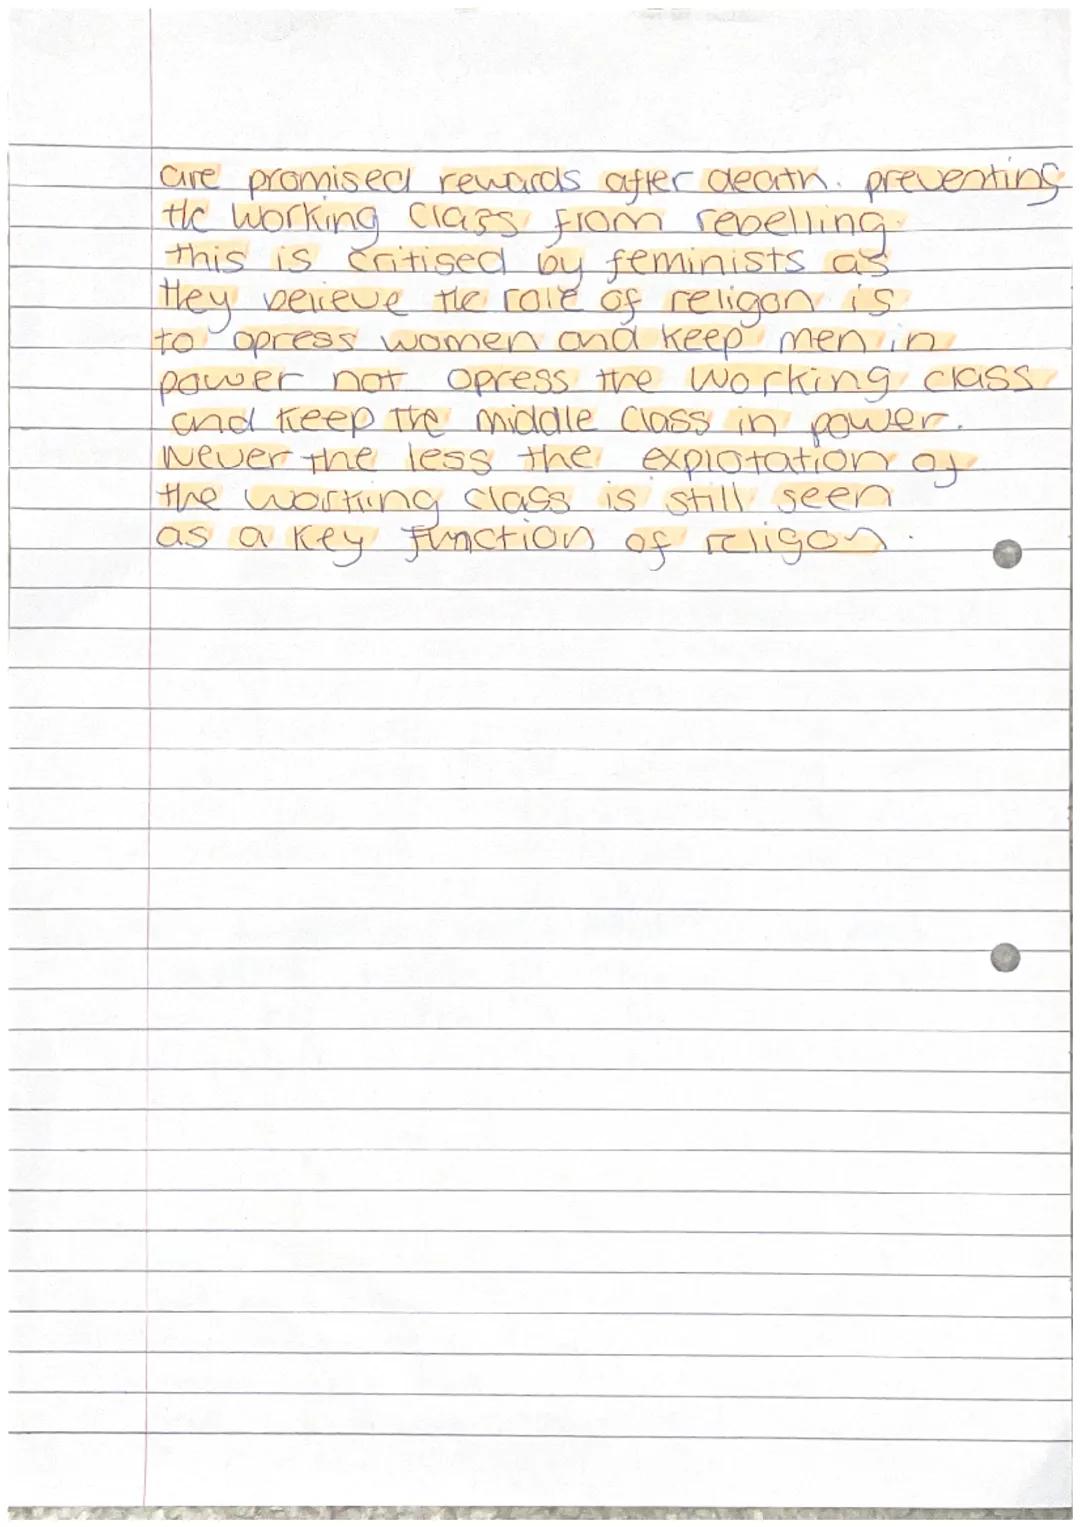 are promised rewards after death. preventing
the working class from rebelling.
this is critised by feminists as
they believe the role of religon is
to opress women and keep men in
power not opress the working class
and keep the middle class in power.
Never the less the explotation of
the working class is still seen
as a key function of religon.